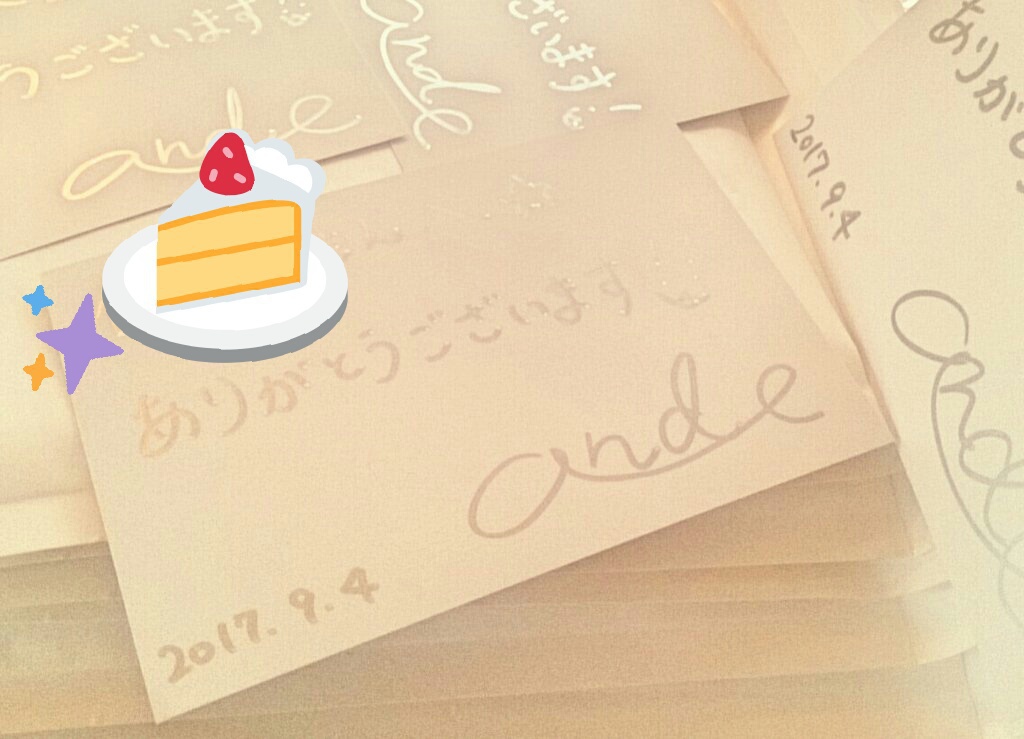 うございます
ande
ande
ざいます!
ありがと
2017.9.4
ande
ありがとうございます
ande
2017.9.4